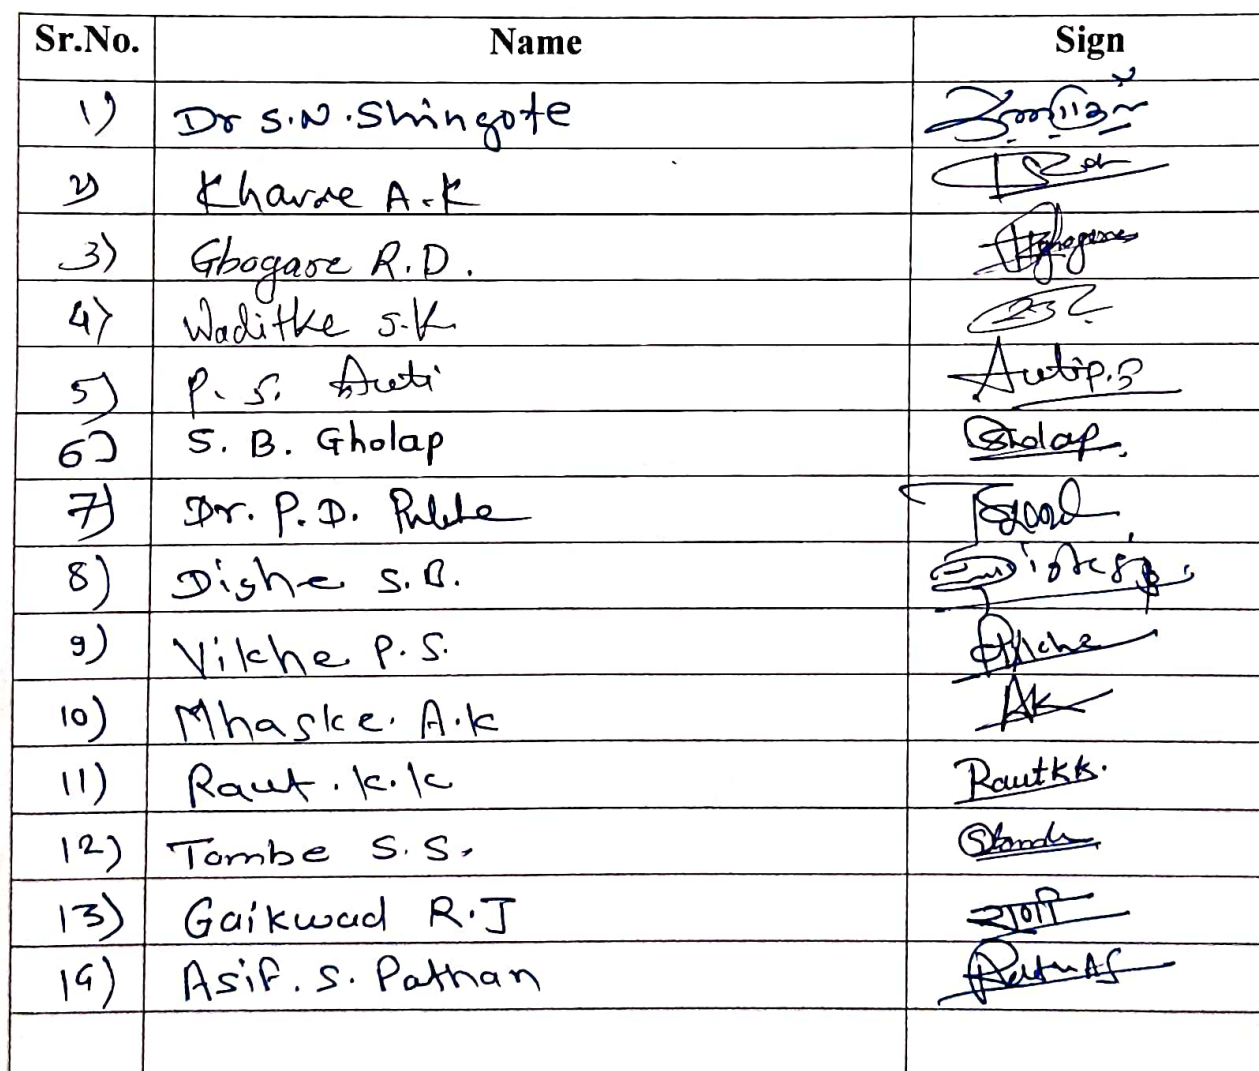 Sr.No. Name Sign
1) Dr S.N. Shingote
2) Kharde A.K
3) Ghogare R.D. Ghogare
4) Waditke S.K
5) P. S. Auti Autip.s
6) S. B. Gholap Gholap.
7) Dr. P.D.
8) Dighe S.B.
9) Vikhe P.S. Vikhe
10) Mhaske. A.K AK
11) Raut. K.K RautKK.
12) Tambe S.S.
13) Gaikwad R.J
14) Asif. S. Pathan